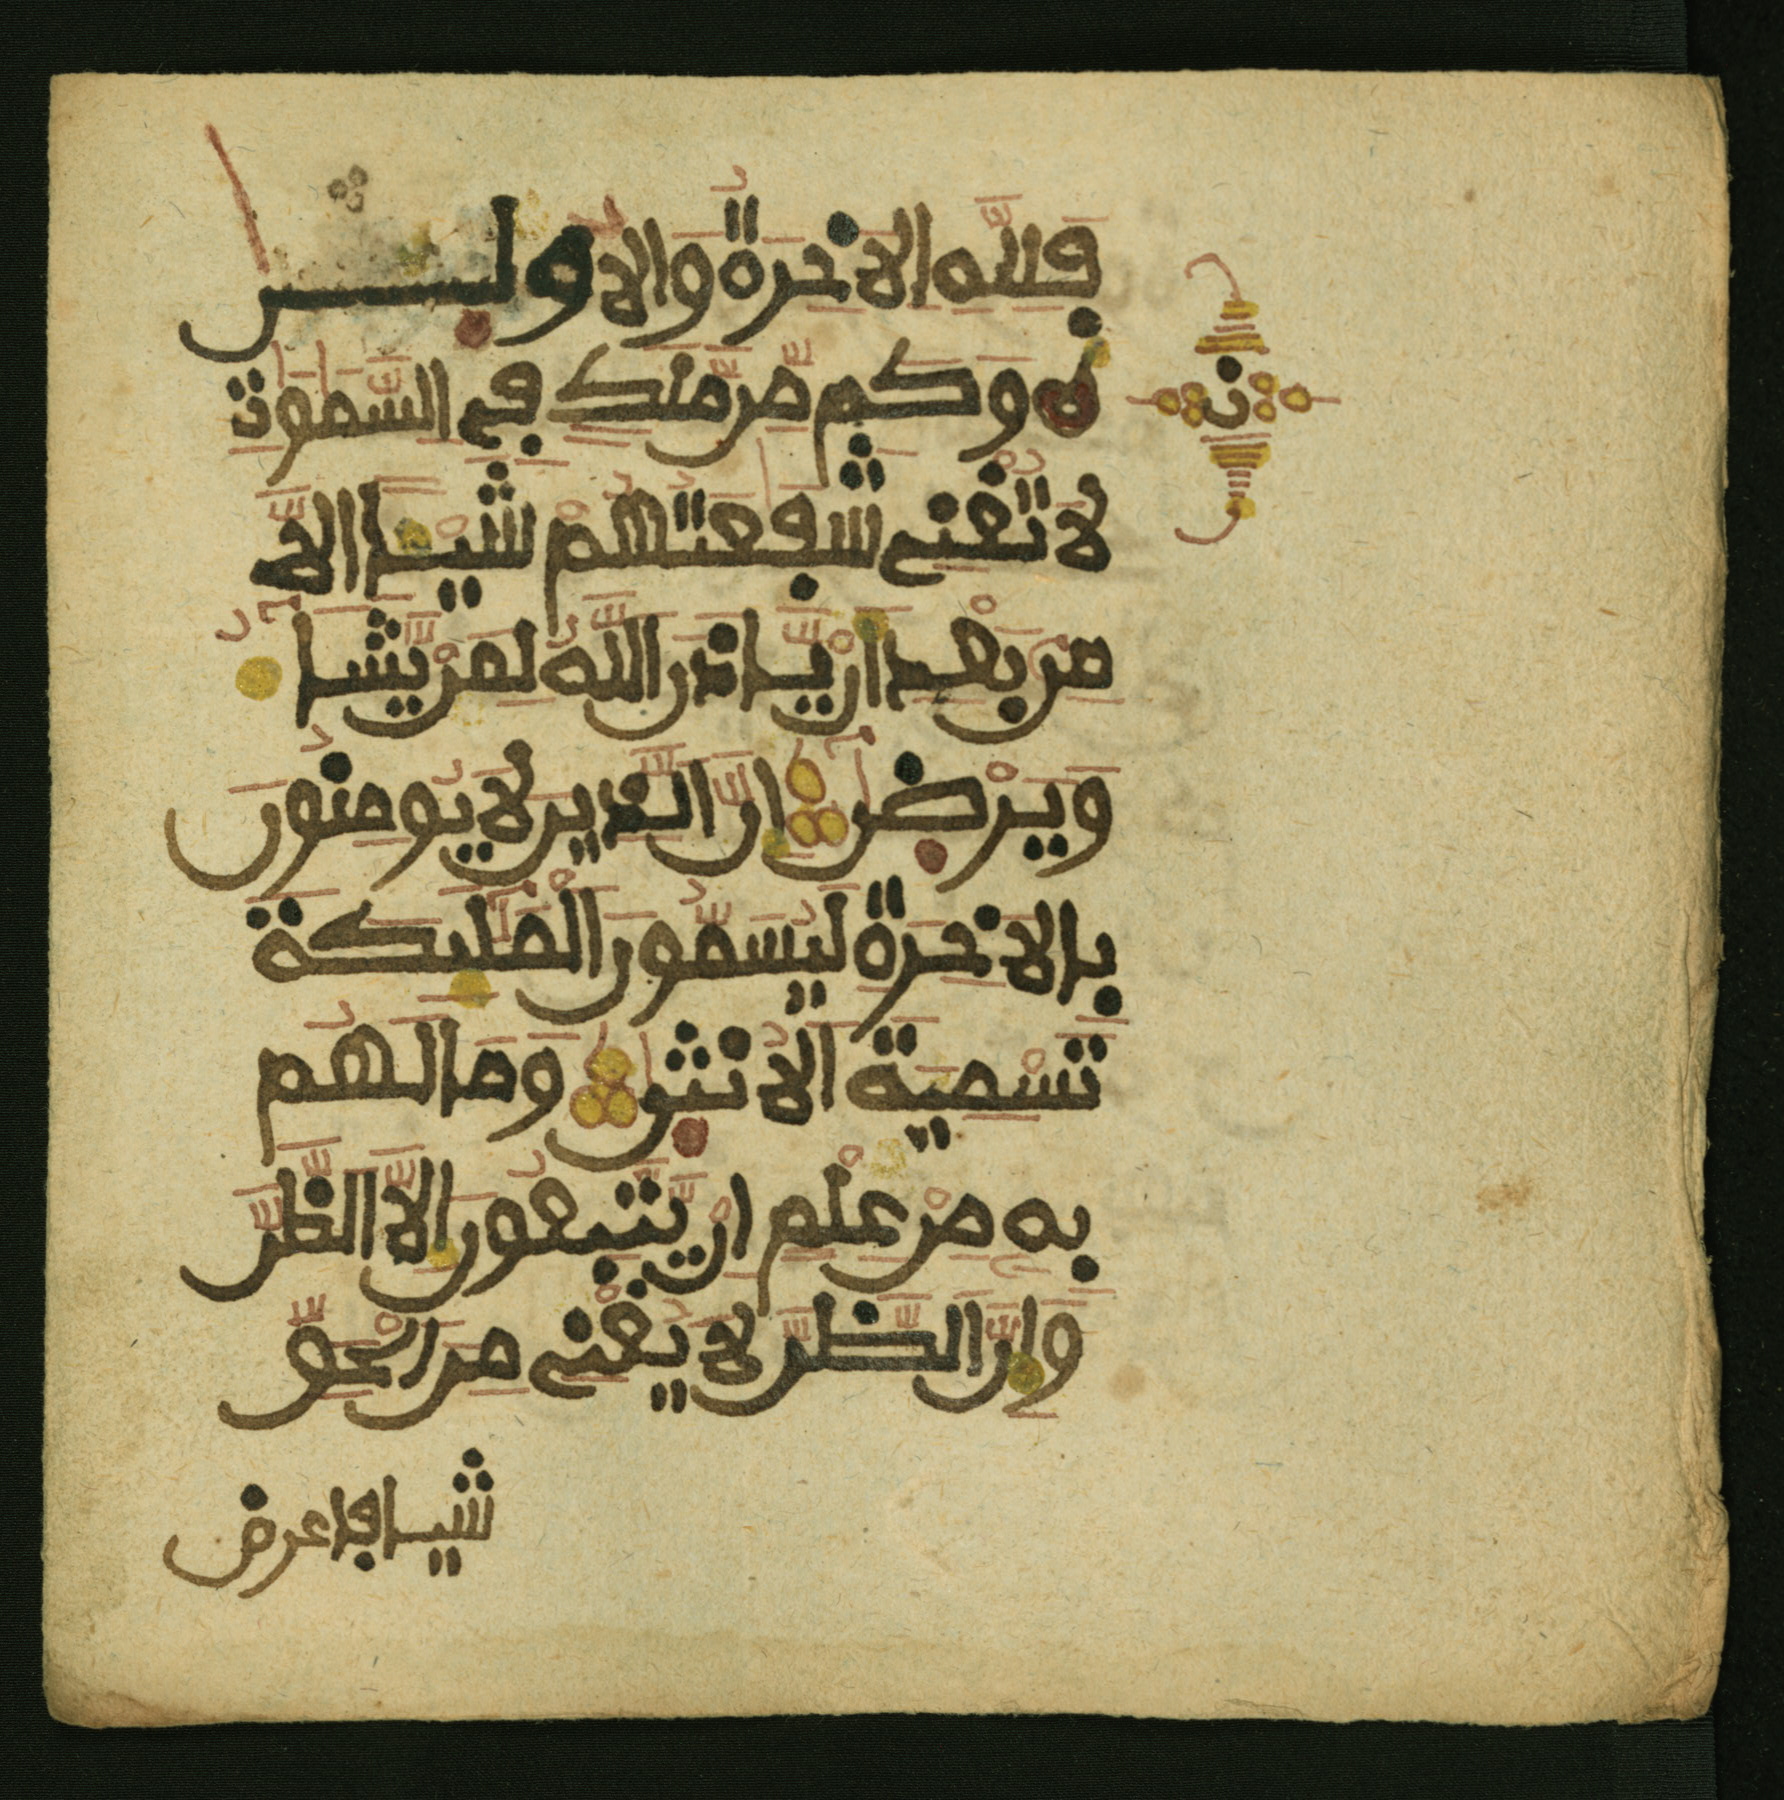 فلله الاخرة والاولى
ه وكم من ملك في السموت
ن
لا تغني شفعتهم شيا الا
من بعد ان ياذن الله لمن يشا
ويرضى ان الذين لا يومنون
بالاخرة ليسمون المليكة
تسمية الانثى وما لهم
به من علم ان يتبعون الا الظن
وان الظن لا يغني من الحق
شيا فاعرض